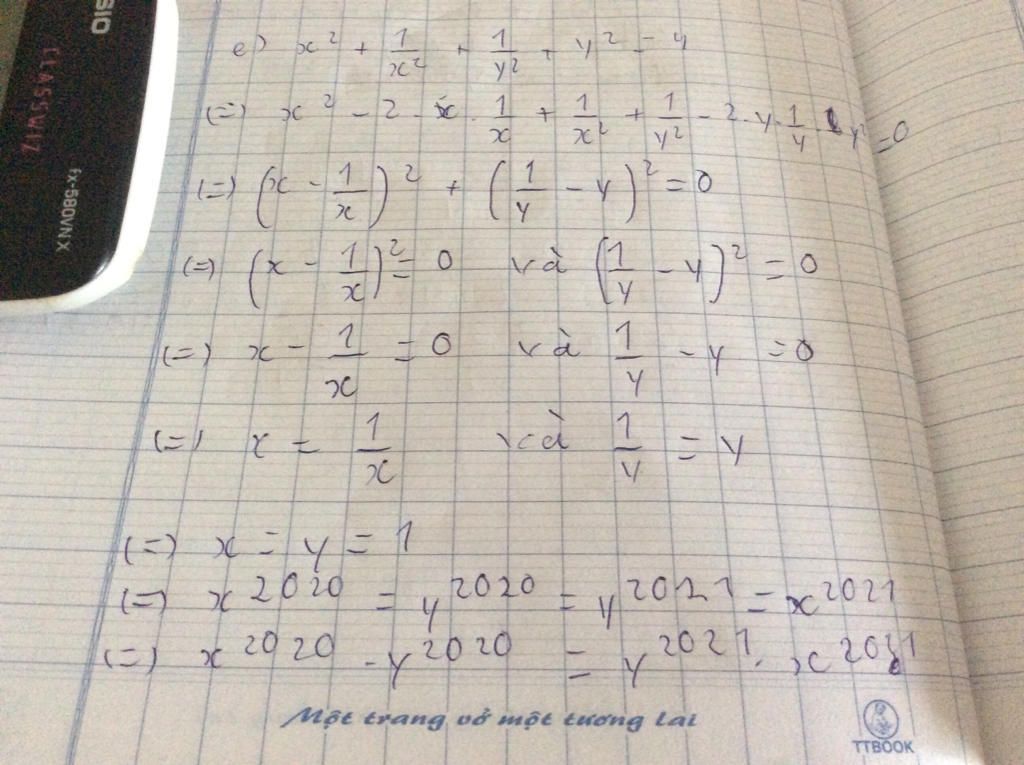 SIO
CLASSWIZ
fx-580VN X
e) x² + 1/x² + 1/y² + y² = 4
(=) x² - 2 . x . 1/x + 1/x² + 1/y² - 2 . y . 1/y + y² = 0
(=) (x - 1/x)² + (1/y - y)² = 0
(=) (x - 1/x)² = 0 và (1/y - y)² = 0
(=) x - 1/x = 0 và 1/y - y = 0
(=) x = 1/x và 1/y = y
(=) x = y = 1
(=) x²⁰²⁰ = y²⁰²⁰ = y²⁰²¹ = x²⁰²¹
(=) x²⁰²⁰ . y²⁰²⁰ = y²⁰²¹ . x²⁰²¹
Một trang vở một tương lai
TTBOOK